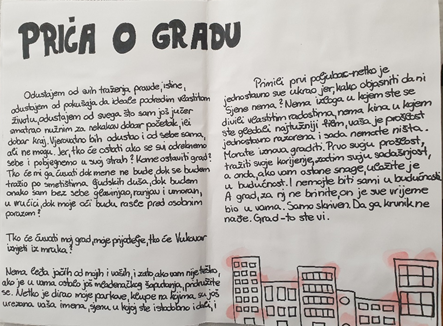 PRIČA O GRADU
Odustajem od svih traženja pravde, istine,
odustajem od pokušaja da ideale podredim vlastitom
životu, odustajem od svega što sam još jučer
smatrao nužnim za nekakav dobar početak, ili
dobar kraj. Vjerovatno bih odustao i od sebe sama,
ali ne mogu. Jer, tko će ostati ako se svi odreknemo
sebe i pobjegnemo u svoj strah? Kome ostaviti grad?
Tko će mi ga čuvati dok mene ne bude, dok se budem
tražio po smetištima ljudskih duša, dok budem
onako sam bez sebe glavinjao, ranjav i umoran,
u vrućici, dok moje oči budu rasle pred osobnim
porazom?
Tko će čuvati moj grad, moje prijatelje, tko će Vukovar
iznijeti iz mraka?
Nema leđa jačih od mojih i vaših, i zato, ako vam nije teško,
ako je u vama ostalo još mladenačkog šaputanja, pridružite
se. Netko je dirao moje parkove, klupe na kojima su još
urezana vaša imena, sjenu u kojoj ste istodobno dali, i
Primili prvi poljubac - netko je
jednostavno sve ukrao jer, kako objasniti da ni
Sjene nema? Nema izloga u kojem ste se
divili vlastitim radostima, nema kina u kojem
ste gledali najtužniji film, vaša je prošlost
jednostavno razorena i sada nemate ništa.
Morate iznova graditi. Prvo svoju prošlost,
tražiti svoje korijenje, zatim svoju sadašnjost,
a onda, ako vam ostane snage, uložite je
u budućnost. I nemojte biti sami u budućnosti.
A grad, za nj ne brinite, on je sve vrijeme
bio u vama. Samo skriven. Da ga krvnik ne
nađe. Grad - to ste vi.